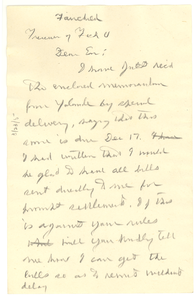 Fairchild
Treasurer of Fisk U
Dear Sir:
I have just rec'd
the enclosed memorandum
from Yolande by special
delivery, saying also this
same is due Dec 17.
I had written that I would
be glad to have all bills
sent directly to me for
prompt settlement. If this
is against your rules
will you kindly tell
me how I can get the
bills so as to remit without
delay